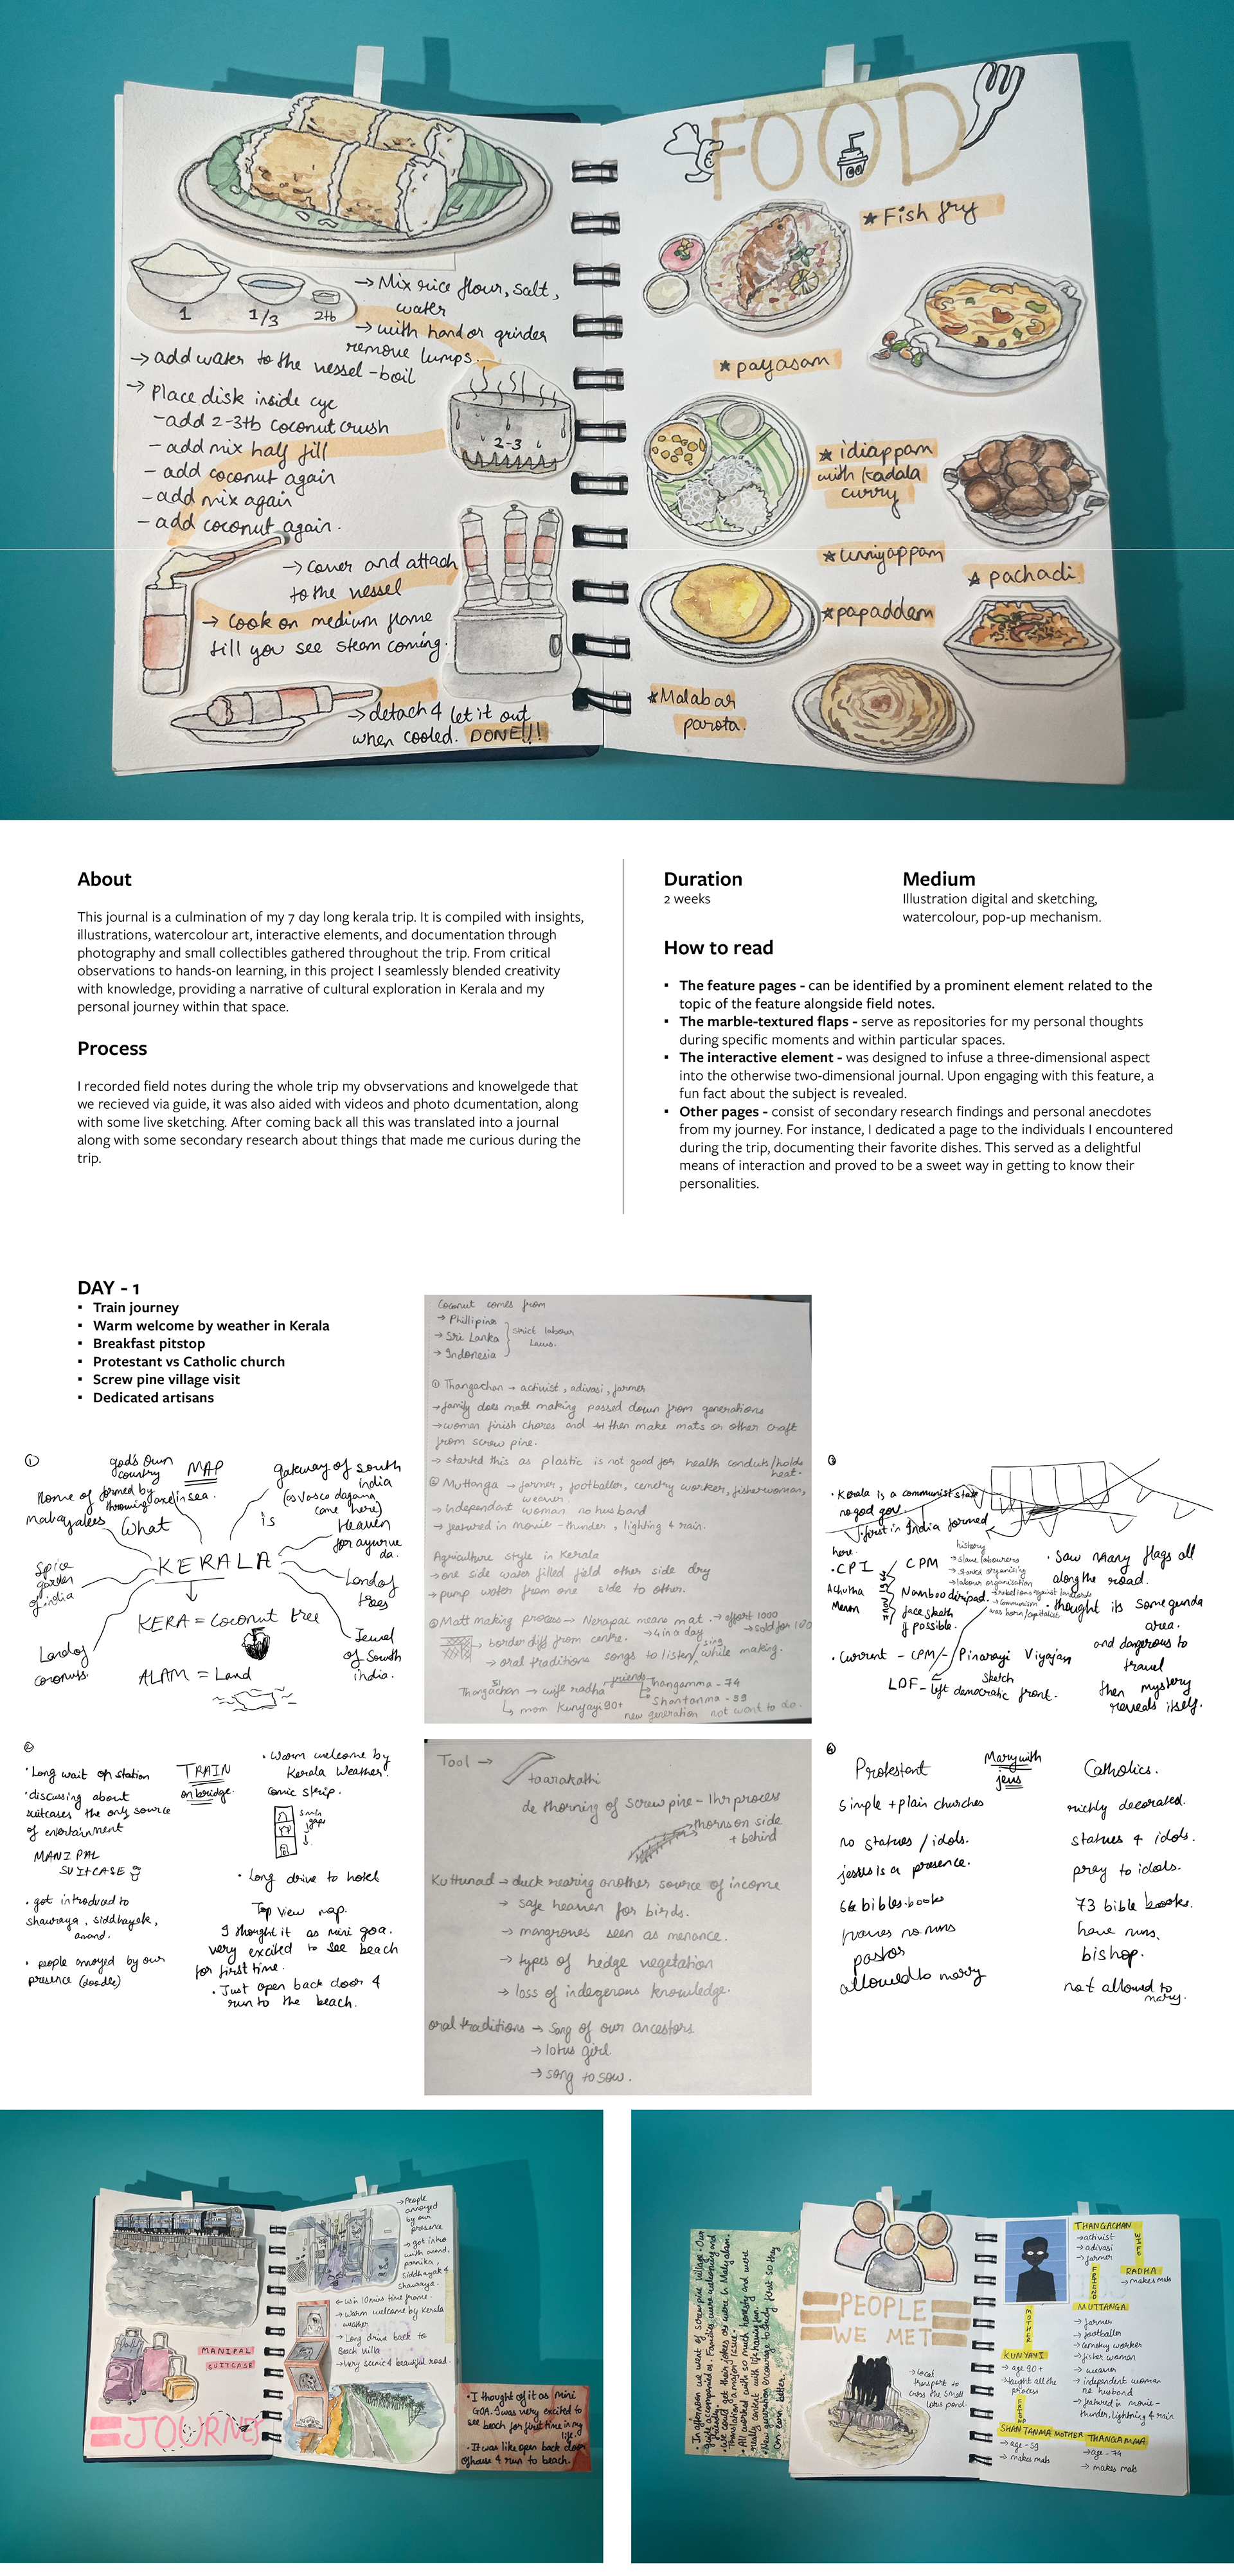 → Mix rice flour, salt,
water
→ with hand or grinder
remove lumps.
1
1/3
2tb
→ add water to the vessel - boil
→ Place disk inside
- add 2-3tb coconut crush
- add mix half fill
- add coconut again
- add mix again
- add coconut again.
2-3
→ cover and attach
to the vessel
→ Cook on medium flame
till you see steam coming.
→ detach & let it out
when cooled. DONE!!!
FOOD
★ Fish fry
★ payasam
★ idiappam
with Kadala
curry
★ unniyappam
★ pachadi
★ papaddam
★ Malabar
parota.
About
This journal is a culmination of my 7 day long kerala trip. It is compiled with insights,
illustrations, watercolour art, interactive elements, and documentation through
photography and small collectibles gathered throughout the trip. From critical
observations to hands-on learning, in this project I seamlessly blended creativity
with knowledge, providing a narrative of cultural exploration in Kerala and my
personal journey within that space.
Process
I recorded field notes during the whole trip my obvservations and knowelgede that
we recieved via guide, it was also aided with videos and photo dcumentation, along
with some live sketching. After coming back all this was translated into a journal
along with some secondary research about things that made me curious during the
trip.
Duration
2 weeks
Medium
Illustration digital and sketching,
watercolour, pop-up mechanism.
How to read
▪ The feature pages - can be identified by a prominent element related to the
topic of the feature alongside field notes.
▪ The marble-textured flaps - serve as repositories for my personal thoughts
during specific moments and within particular spaces.
▪ The interactive element - was designed to infuse a three-dimensional aspect
into the otherwise two-dimensional journal. Upon engaging with this feature, a
fun fact about the subject is revealed.
▪ Other pages - consist of secondary research findings and personal anecdotes
from my journey. For instance, I dedicated a page to the individuals I encountered
during the trip, documenting their favorite dishes. This served as a delightful
means of interaction and proved to be a sweet way in getting to know their
personalities.
DAY - 1
▪ Train journey
▪ Warm welcome by weather in Kerala
▪ Breakfast pitstop
▪ Protestant vs Catholic church
▪ Screw pine village visit
▪ Dedicated artisans
①
god's own
country
MAP
formed by
throwing axe in sea.
Home of
malayalees
What
is
gateway of south
india
(as Vasco dagama
came here)
Heaven
for ayurve
da.
Spice
garden
of india
KERALA
Land of
trees
KERA = Coconut tree
Land of
coconuts
Jewel
of South
india.
ALAM = Land
Coconut comes from
→ Phillipins
→ Sri Lanka
→ Indonesia
strict labour
laws.
① Thangachan → activist, adivasi, farmer
→ family does matt making passed down from generations
→ women finish chores and then make mats or other craft
from screw pine.
→ started this as plastic is not good for health conduts/holds
heat.
② Muttanga → farmer, footballer, cemetry worker, fisherwoman,
weaver.
→ Independant woman no husband
→ featured in movie - thunder, lighting & rain.
Agriculture style in Kerala
→ one side water filled field other side dry
→ pump water from one side to other.
③ Matt making process → Nerapai means mat. → effort 1000
→ 4 in a day
→ border diff from centre.
→ oral traditions songs to listen/sing while making.
Thangachan → wife radha
friend
Thangamma - 74
Shantanma - 59
↳ mom Kunyayi 90+
new generation not want to do.
• Kerala is a communist state
no god gov.
first in India formed
here.
• CPI
CPM
Achutha
Menon
history
→ slave labourers
→ started organizing
→ labour organisation
Namboodiripad.
face sketch
if possible.
• Current - CPM - Pinarayi Vijayan
sketch
LDF - left democratic front.
• Saw many flags all
along the road.
• thought its some gunda
area.
and dangerous to
travel
then mystery
reveals itself.
②
• Long wait on station
• discussing about
suitcases the only source
of entertainment
MANIPAL
SUITCASE
• got introduced to
shawraya, siddhayak,
anand.
• people annoyed by our
presence (doodle)
TRAIN
on bridge.
• Warm welcome by
Kerala Weather.
comic strip.
5 min
gaps
• Long drive to hotel
Top view map.
I thought it as mini goa.
very excited to see beach
for first time.
• Just open back door &
run to the beach.
Tool →
taarakathi
de thorning of screw pine - 1hr process
thorns on side
+ behind
Kuttunad → duck rearing another source of income
→ safe heaven for birds.
→ mangroves seen as menance.
→ types of hedge vegetation
→ loss of indegenous knowledge.
oral traditions → Song of our ancestors
→ lotus girl
→ song to sow.
Protestant
Mary with
jesus
Catholics.
simple + plain churches
richly decorated.
no statues / idols.
statues & idols.
jesus is a presence.
pray to idols.
66 bibles-books
73 bible books.
no nuns
have nuns.
pastor
bishop.
allowed to marry
not allowed to
marry.
MANIPAL
SUITCASE
JOURNEY
→ People
annoyed
by our
presence
→ got intro
with anand,
siddhayak &
shawraya.
→ Warm welcome by Kerala
weather
→ Long drive back to
Beach villa
→ Very scenic & beautiful road.
• I thought of it as mini
GOA. I was very excited to
see beach for first time in my
life.
• It was like open back door
of house & run to beach.
PEOPLE
WE MET
→ local
transport to
cross the small
lotus pond.
THANGACHAN
→ activist
→ adivasi
→ farmer
WIFE
RADHA
→ makes mats
FRIEND
MUTTANGA
→ farmer
→ footballer
→ cemetry worker
→ fisher woman
→ weaver
→ independent woman
no husband
→ featured in movie -
thunder, lighting & rain
MOTHER
KUNYAYI
→ age 90+
→ taught all the
process
FRIEND
SHANTANMA
→ age - 59
→ makes mats
MOTHER
THANGAMMA
→ age - 74
→ makes mats